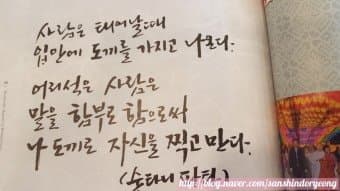 사람은 태어날때
입안에 도끼를 가지고 나온다.
어리석은 사람은
말을 함부로 함으로써
그 도끼로 자신을 찍고 만다.
(숫타니 파타)
http://blog.naver.com/sanshinderyeong